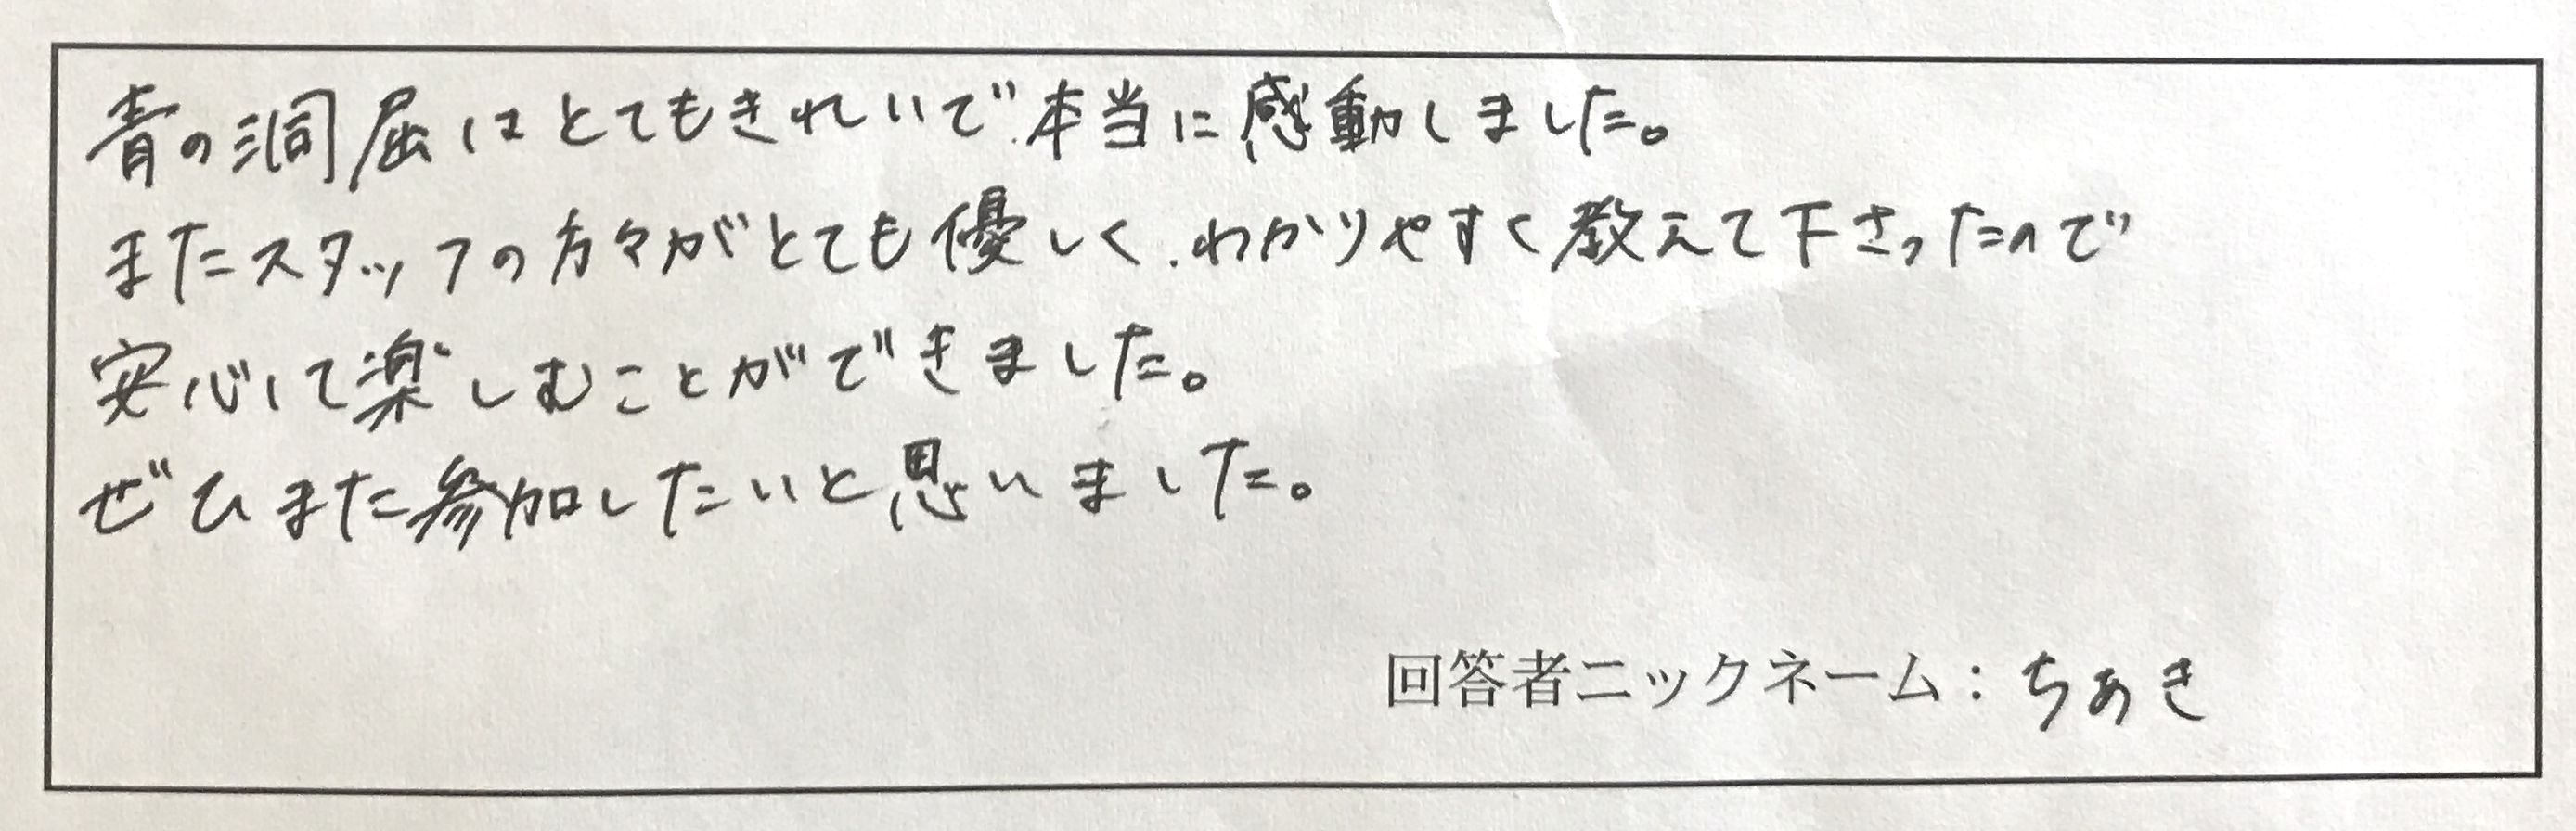 青の洞屈はとてもきれいで、本当に感動しました。
またスタッフの方々がとても優しく、わかりやすく教えて下さったので
安心して楽しむことができました。
ぜひまた参加したいと思いました。
回答者ニックネーム：ちあき